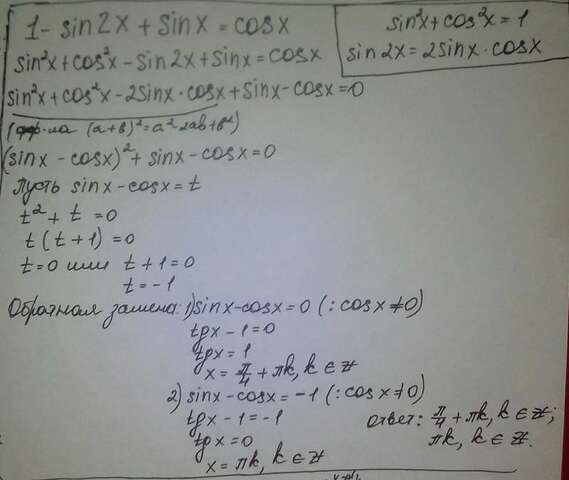 1 - sin2x + sinx = cosx
sin²x + cos²x = 1
sin2x = 2sinx · cosx
sin²x + cos²x - sin2x + sinx = cosx
sin²x + cos²x - 2sinx · cosx + sinx - cosx = 0
(ф-ла (a+b)² = a² 2ab + b²)
(sinx - cosx)² + sinx - cosx = 0
Пусть sinx - cosx = t
t² + t = 0
t (t + 1) = 0
t = 0 или t + 1 = 0
t = -1
Обратная замена: 1) sinx - cosx = 0 (: cosx ≠ 0)
tgx - 1 = 0
tgx = 1
x = π/4 + πk, k ∈ Z
2) sinx - cosx = -1 (: cosx ≠ 0)
tgx - 1 = -1
tgx = 0
x = πk, k ∈ Z
Ответ: π/4 + πk, k ∈ Z;
πk, k ∈ Z.